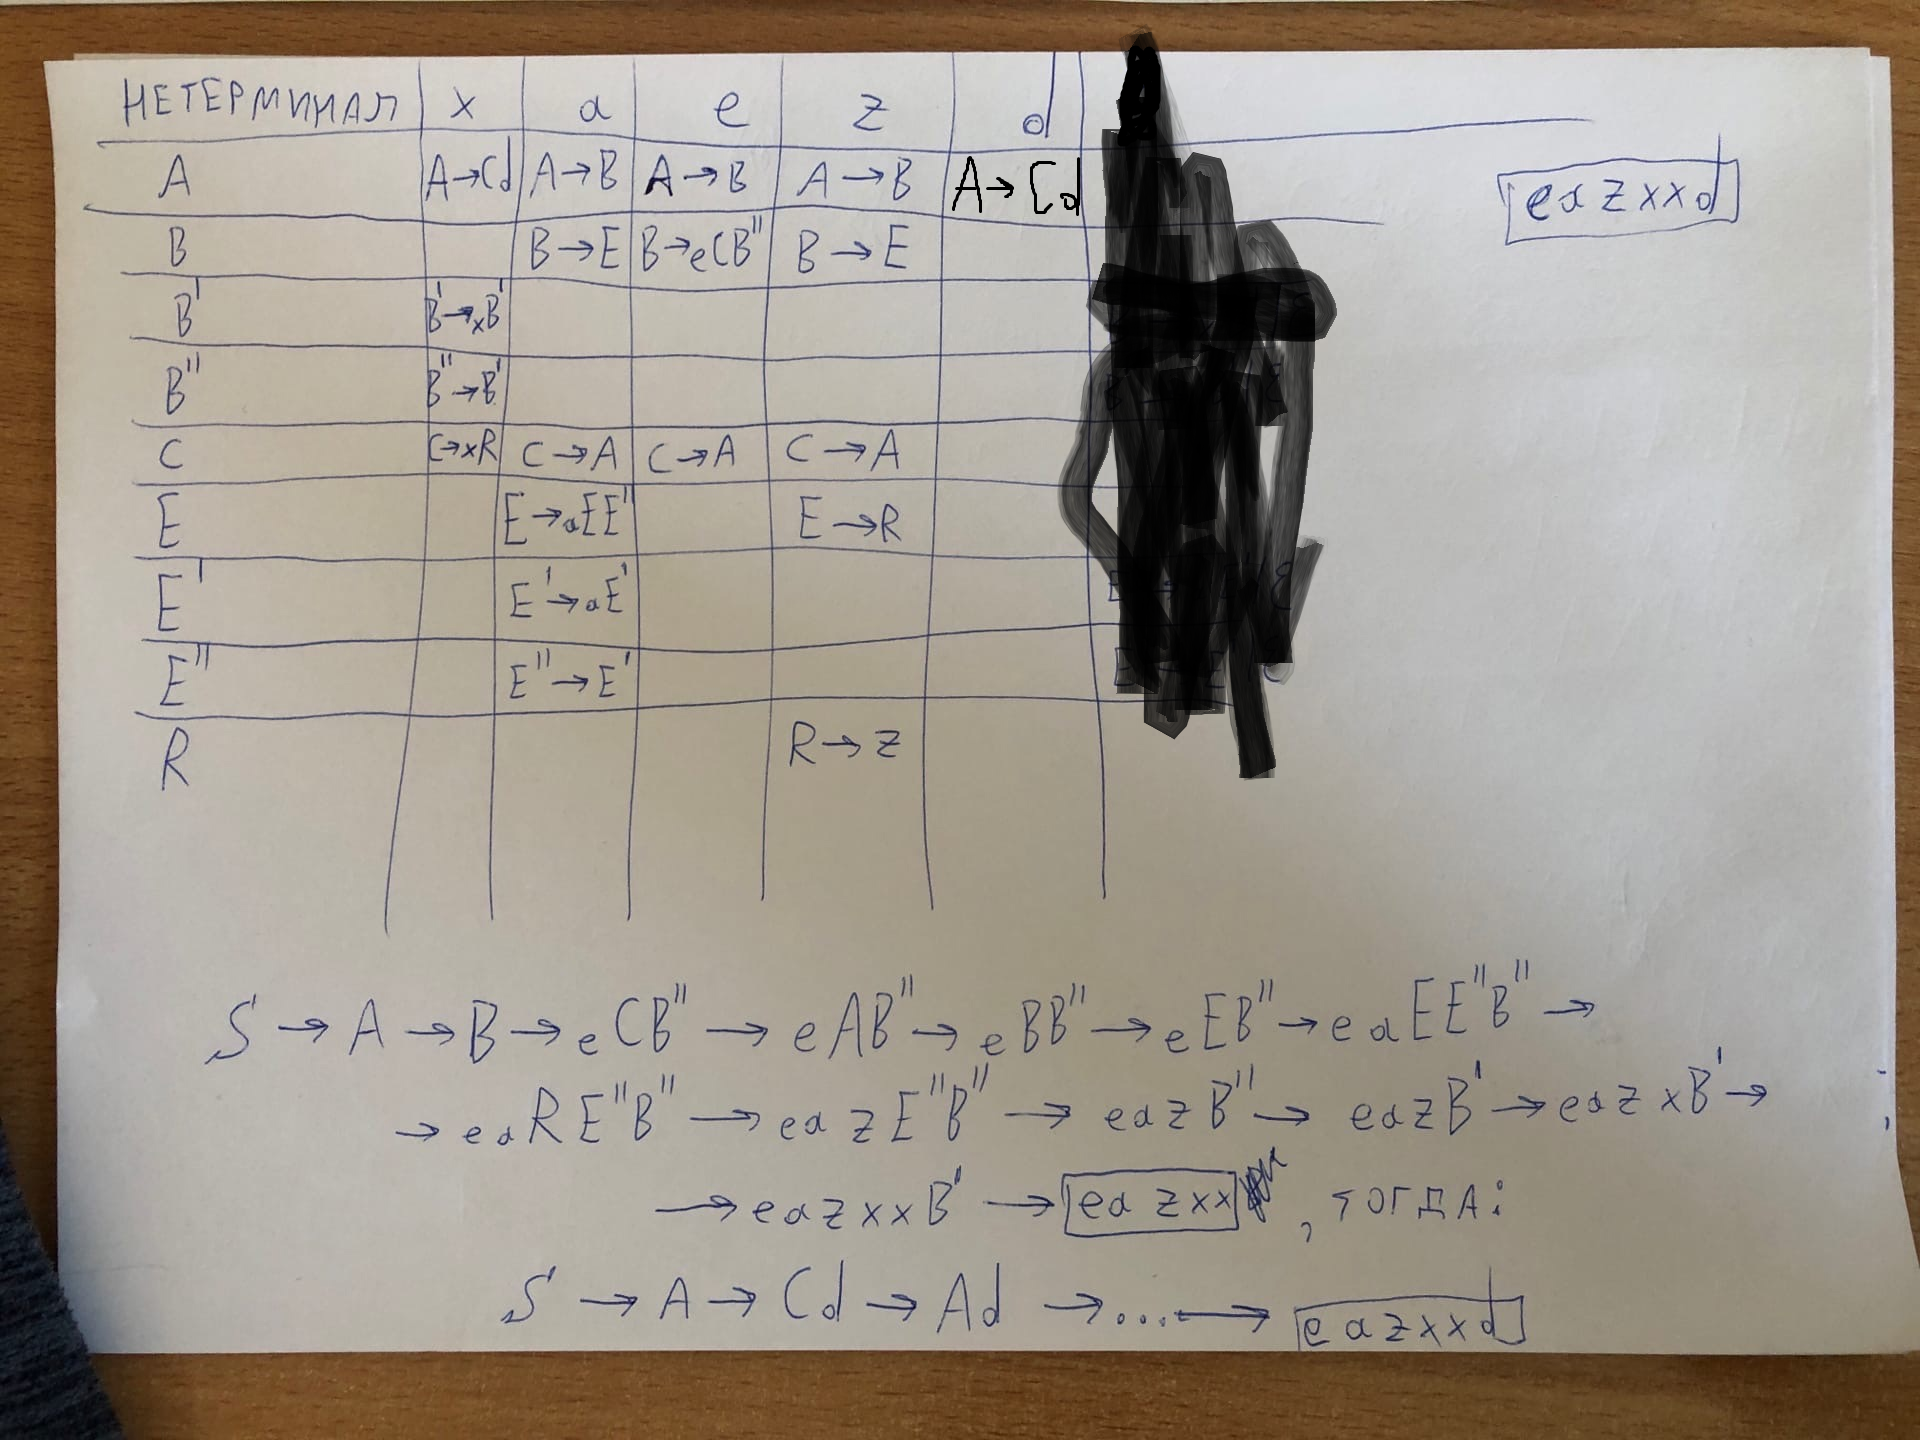 НЕТЕРМИНАЛ x a e z d
A A→Cd A→B A→B A→B A→Cd
eazxxd
B B→E B→eCB" B→E
B' B'→xB'
B" B"→B'
C C→xR C→A C→A C→A
E E→aEE" E→R
E' E'→aE'
E" E"→E'
R R→z
S→A→B→eCB"→eAB"→eBB"→eEB"→eaEE"B"→
→eaRE"B"→eazE"B"→eazB"→eazB'→eazxB'→
→eazxxB'→eazxx, ТОГДА:
S→A→Cd→Ad→...→eazxxd